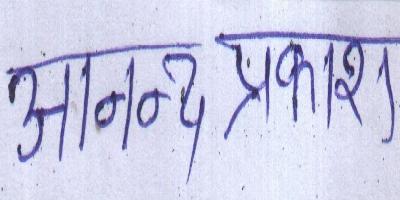 आनन्द प्रकाश